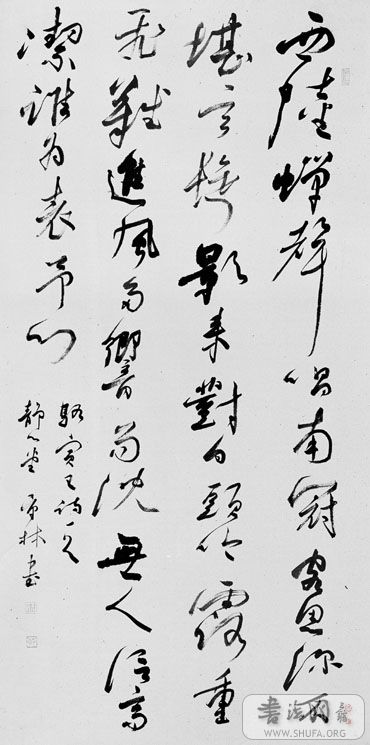 西陸蟬聲唱南冠客思深不
堪玄鬢影來對白頭吟露重
飛難進風多響易沈無人信高
潔誰為表予心
駱賓王詩一首
靜心堂 林書
書法网
WWW.SHUFA.ORG